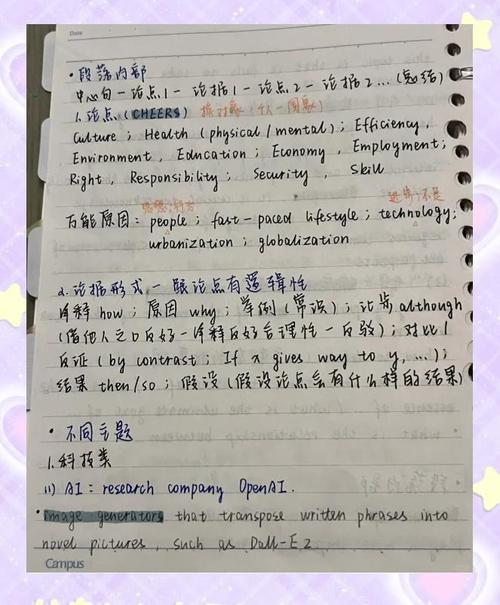 Date
• 段落内部
中心句 - 论点1 - 论据1 - 论点2 - 论据2 ... (总结)
1. 论点 (CHEERS) 换对象 (个人-国家)
Culture ; Health (physical / mental) ; Efficiency,
Environment, Education ; Economy, Employment ;
Right, Responsibility ; Security, Skill
思想;行为 进步;不足
万能原因: people ; fast-paced lifestyle ; technology ;
urbanization ; globalization
2. 论据形式 - 跟论点有逻辑性
解释 how ; 原因 why ; 举例 (常识) ; 让步 although
(借他人之口反好 - 解释反好合理性 - 反驳) ; 对比/
反证 (by contrast ; If x gives way to y, ...) ;
结果 then/so ; 假设 (假设论点会有什么样的结果)
• 不同主题
1. 科技类
(1) AI : research company OpenAI.
• image generators that transpose written phrases into
novel pictures, such as Dall-E 2
Campus